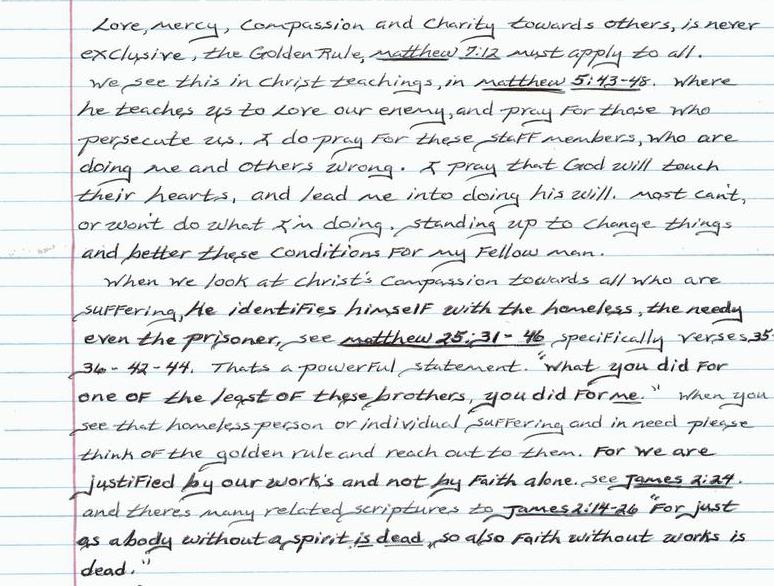 Love, mercy, compassion and Charity towards others, is never
exclusive, the Golden Rule, matthew 7:12 must apply to all.
We see this in Christ teachings, in matthew 5:43-48. Where
he teaches us to Love our enemy, and pray for those who
persecute us. I do pray for these staff members, who are
doing me and others wrong. I pray that God will touch
their hearts, and lead me into doing his will. most can't,
or won't do what I'm doing. standing up to change things
and better these conditions for my fellow man.
When we look at christ's compassion towards all who are
suffering, He identifies himself with the homeless, the needy
even the prisoner, see matthew 25:31-46 specifically verses 35-
36-42-44. Thats a powerful statement. "What you did for
one of the least of these brothers, you did for me." When you
see that homeless person or individual suffering and in need please
think of the golden rule and reach out to them. For we are
justified by our work's and not by faith alone. see James 2:24.
and theres many related scriptures to James 2:14-26 "For just
as a body without a spirit is dead, so also faith without works is
dead."